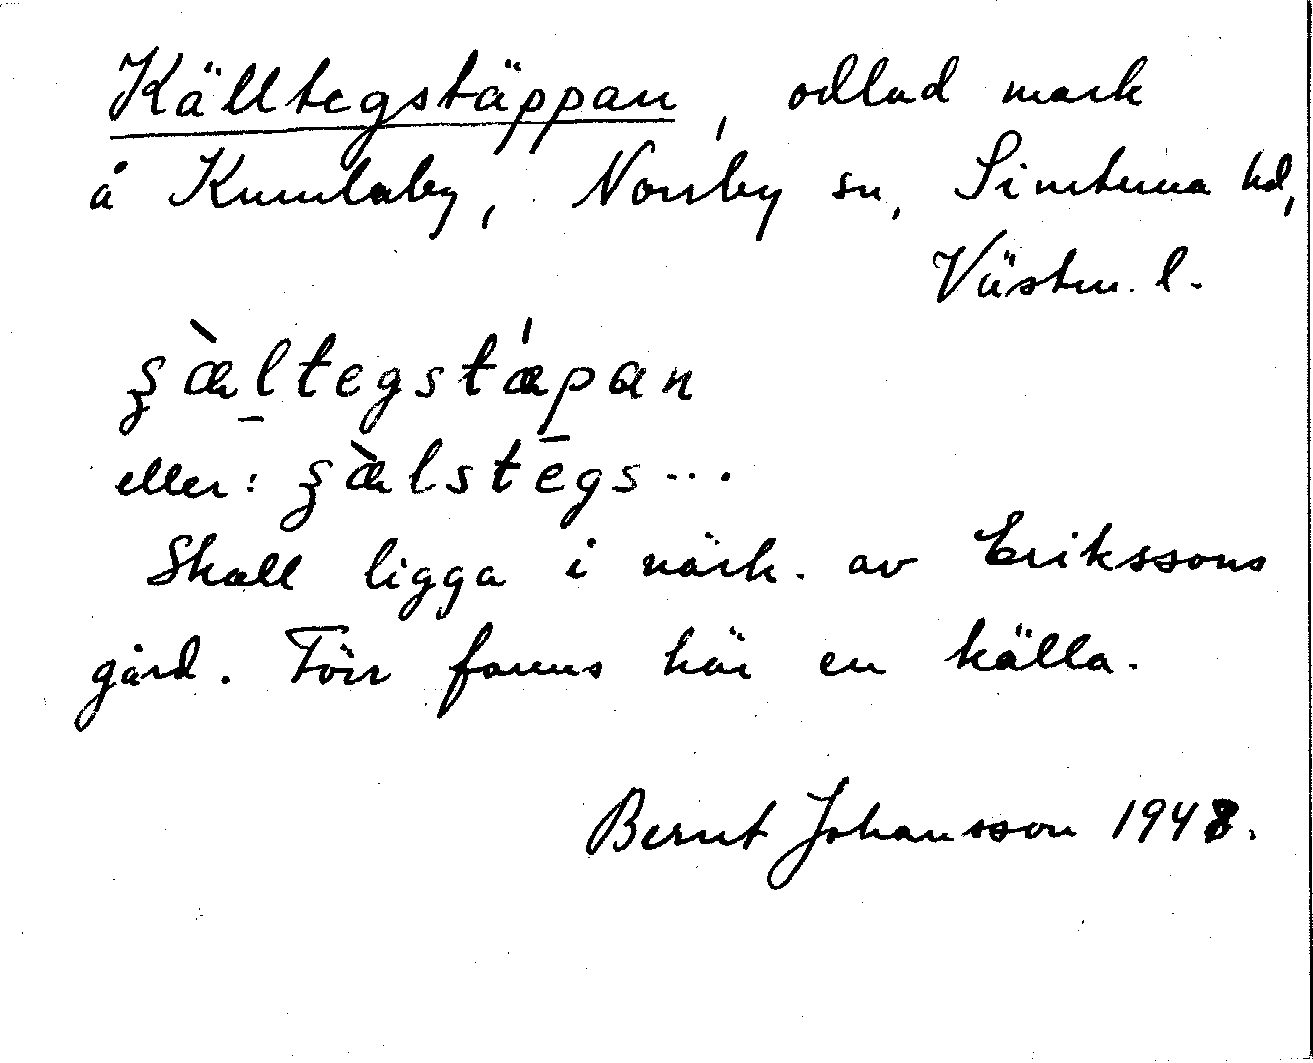 Källtegstäppan, odlad mark
å Kumlaby, Norrby sn, Simtuna hd,
Västm. l.
ʂæ̀l̠tegstǽpan
eller: ʂæ̀lstēgs...
Skall ligga i närh. av Erikssons
gård. Förr fanns här en källa.
Bernt Johansson 1948.